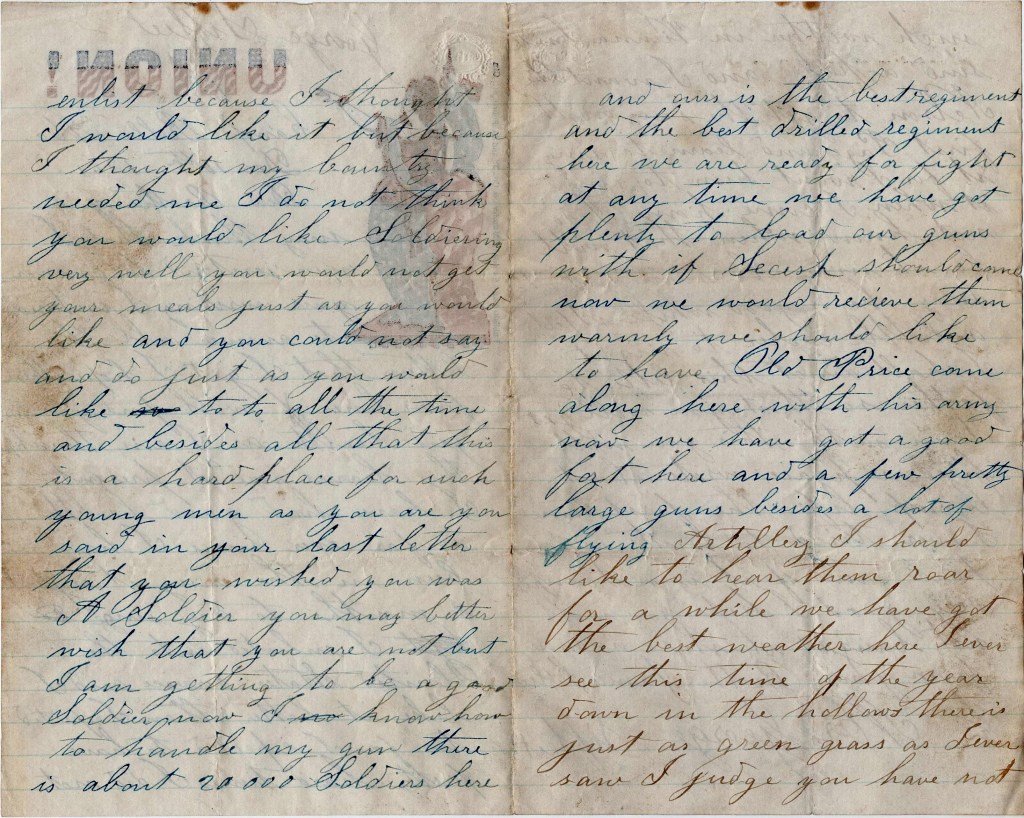 UNION!
enlist because I thought
I would like it but because
I thought my country
needed me I do not think
you would like Soldiering
very well you would not get
your meals just as you would
like and you could not say
and do just as you would
like to to all the time
and besides all that this
is a hard place for such
young men as you are you
said in your last letter
that you wished you was
A Soldier you may better
wish that you are not but
I am getting to be a good
Soldier now I know how
to handle my gun there
is about 20000 Soldiers here
and ours is the best regiment
and the best drilled regiment
here we are ready for fight
at any time we have got
plenty to load our guns
with if Secesh should come
now we would recieve them
warmly we should like
to have Old Price come
along here with his army
now we have got a good
fort here and a few pretty
large guns besides a lot of
flying Artillery I should
like to hear them roar
for a while we have got
the best weather here I ever
see this time of the year
down in the hollows there is
just as green grass as I ever
saw I judge you have not